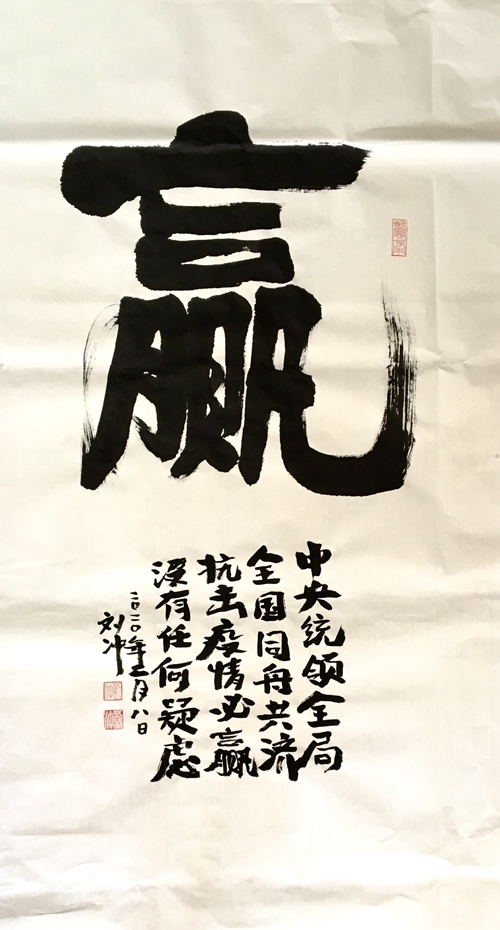 赢
中央统领全局
全国同舟共济
抗击疫情必赢
没有任何疑虑
二〇二〇年二月八日
刘冲